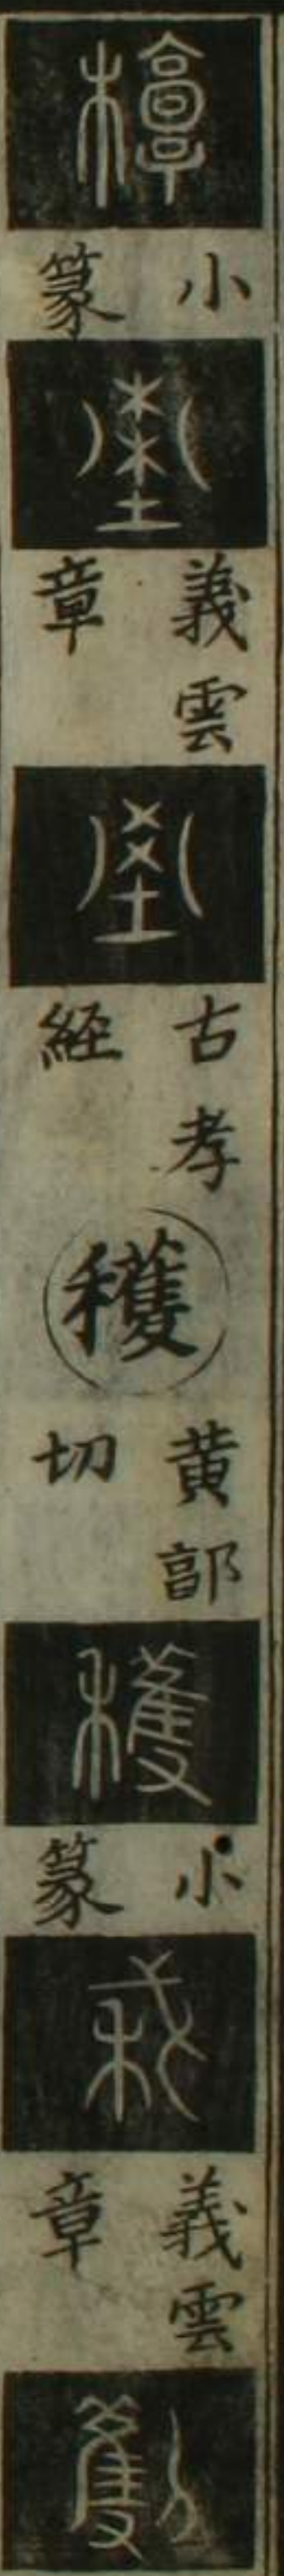 槨
小篆

義雲章

古孝経
穫
黄郭切
穫
小篆

義雲章